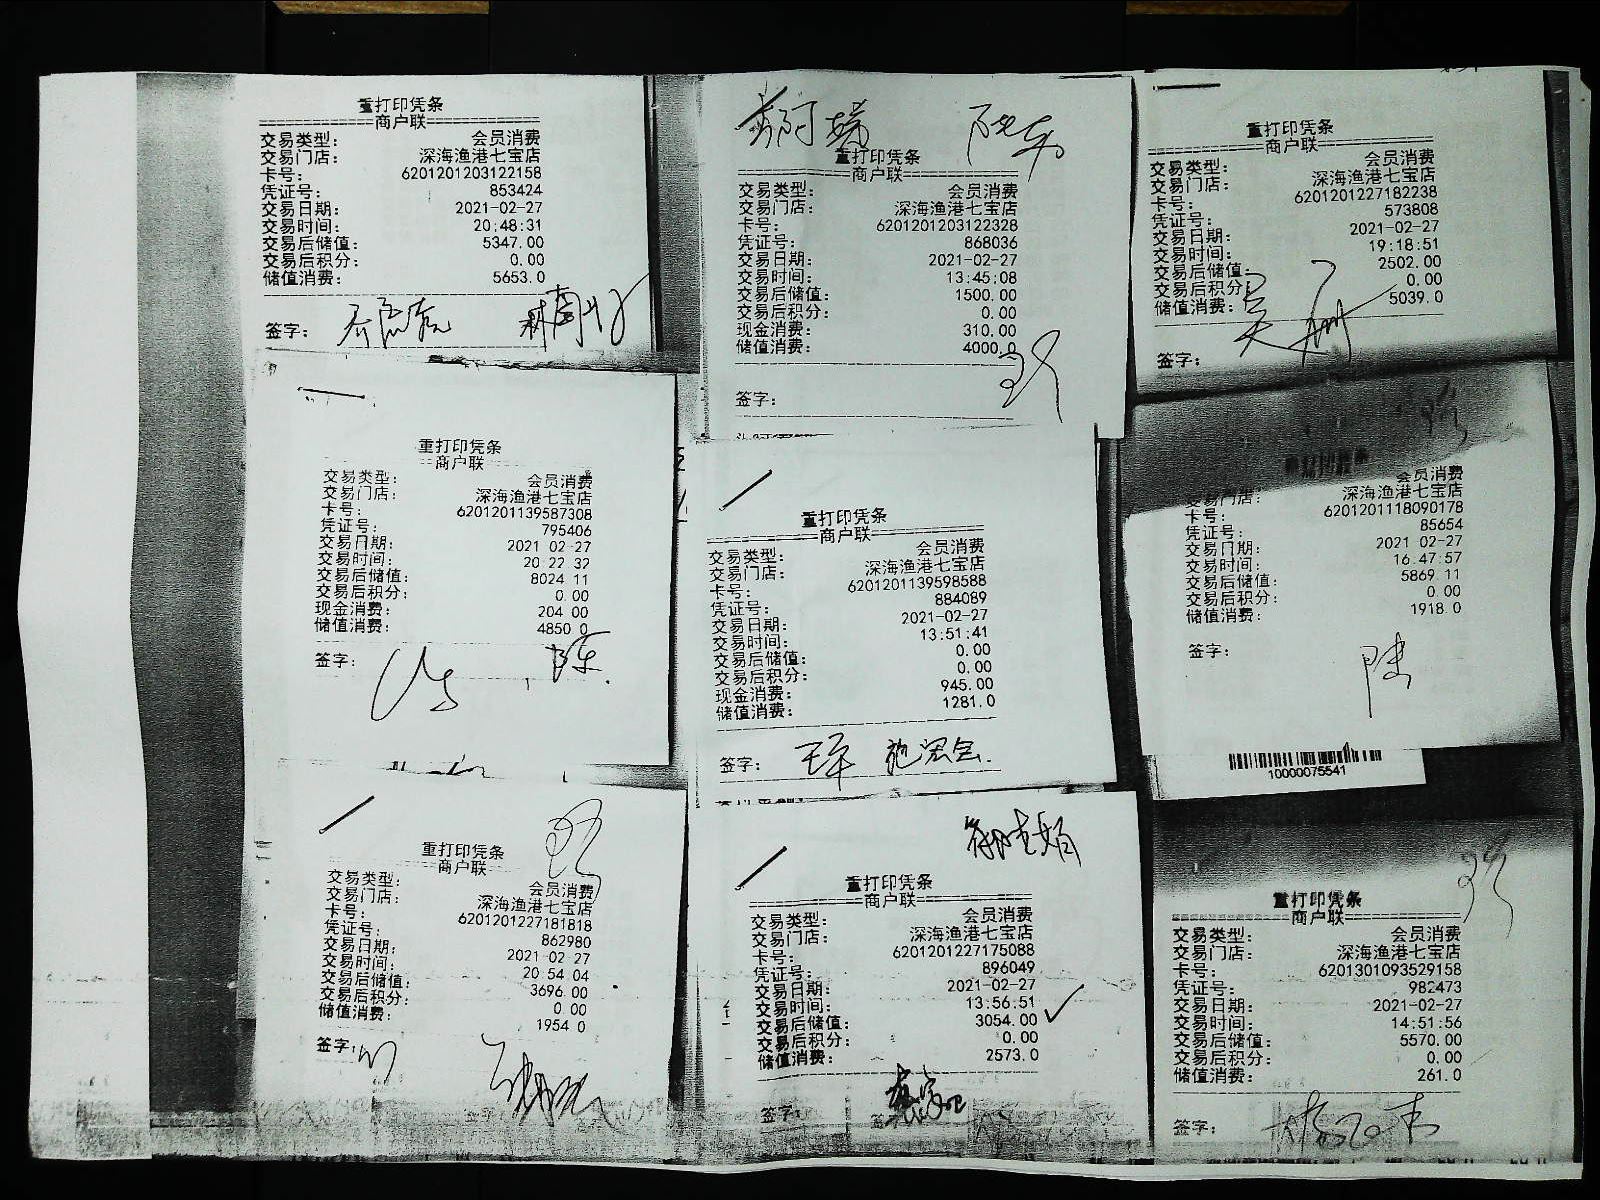 重打印凭条
商户联
交易类型: 会员消费
交易门店: 深海渔港七宝店
卡号: 6201201203122158
凭证号: 853424
交易日期: 2021-02-27
交易时间: 20:48:31
交易后储值: 5347.00
交易后积分: 0.00
储值消费: 5653.0
签字:
重打印凭条
商户联
交易类型: 会员消费
交易门店: 深海渔港七宝店
卡号: 6201201203122328
凭证号: 868036
交易日期: 2021-02-27
交易时间: 13:45:08
交易后储值: 1500.00
交易后积分: 0.00
现金消费: 310.00
储值消费: 4000.0
签字:
重打印凭条
商户联
交易类型: 会员消费
交易门店: 深海渔港七宝店
卡号: 6201201227182238
凭证号: 573808
交易日期: 2021-02-27
交易时间: 19:18:51
交易后储值: 2502.00
交易后积分: 0.00
储值消费: 5039.0
签字:
重打印凭条
商户联
交易类型: 会员消费
交易门店: 深海渔港七宝店
卡号: 6201201139587308
凭证号: 795406
交易日期: 2021 02-27
交易时间: 20 22 32
交易后储值: 8024 11
交易后积分: 0 00
现金消费: 204 00
储值消费: 4850 0
签字: 陈
重打印凭条
商户联
交易类型: 会员消费
交易门店: 深海渔港七宝店
卡号: 6201201139598588
凭证号: 884089
交易日期: 2021-02-27
交易时间: 13:51:41
交易后储值: 0.00
交易后积分: 0.00
现金消费: 945.00
储值消费: 1281.0
签字:
会员消费
交易门店: 深海渔港七宝店
卡号: 6201201118090178
凭证号: 85654
交易日期: 2021 02-27
交易时间: 16.47:57
交易后储值: 5869 11
交易后积分: 0.00
储值消费: 1918.0
签字:
10000075541
重打印凭条
商户联
交易类型: 会员消费
交易门店: 深海渔港七宝店
卡号: 6201201227181818
凭证号: 862980
交易日期: 2021-02-27
交易时间: 20 54 04
交易后储值: 3696.00
交易后积分: 0 00
储值消费: 1954 0
签字:
重打印凭条
商户联
交易类型: 会员消费
交易门店: 深海渔港七宝店
卡号: 6201201227175088
凭证号: 896049
交易日期: 2021-02-27
交易时间: 13:56:51
交易后储值: 3054.00
交易后积分: 0.00
储值消费: 2573.0
签字:
重打印凭条
商户联
交易类型: 会员消费
交易门店: 深海渔港七宝店
卡号: 6201301093529158
凭证号: 982473
交易日期: 2021-02-27
交易时间: 14:51:56
交易后储值: 5570.00
交易后积分: 0.00
储值消费: 261.0
签字: